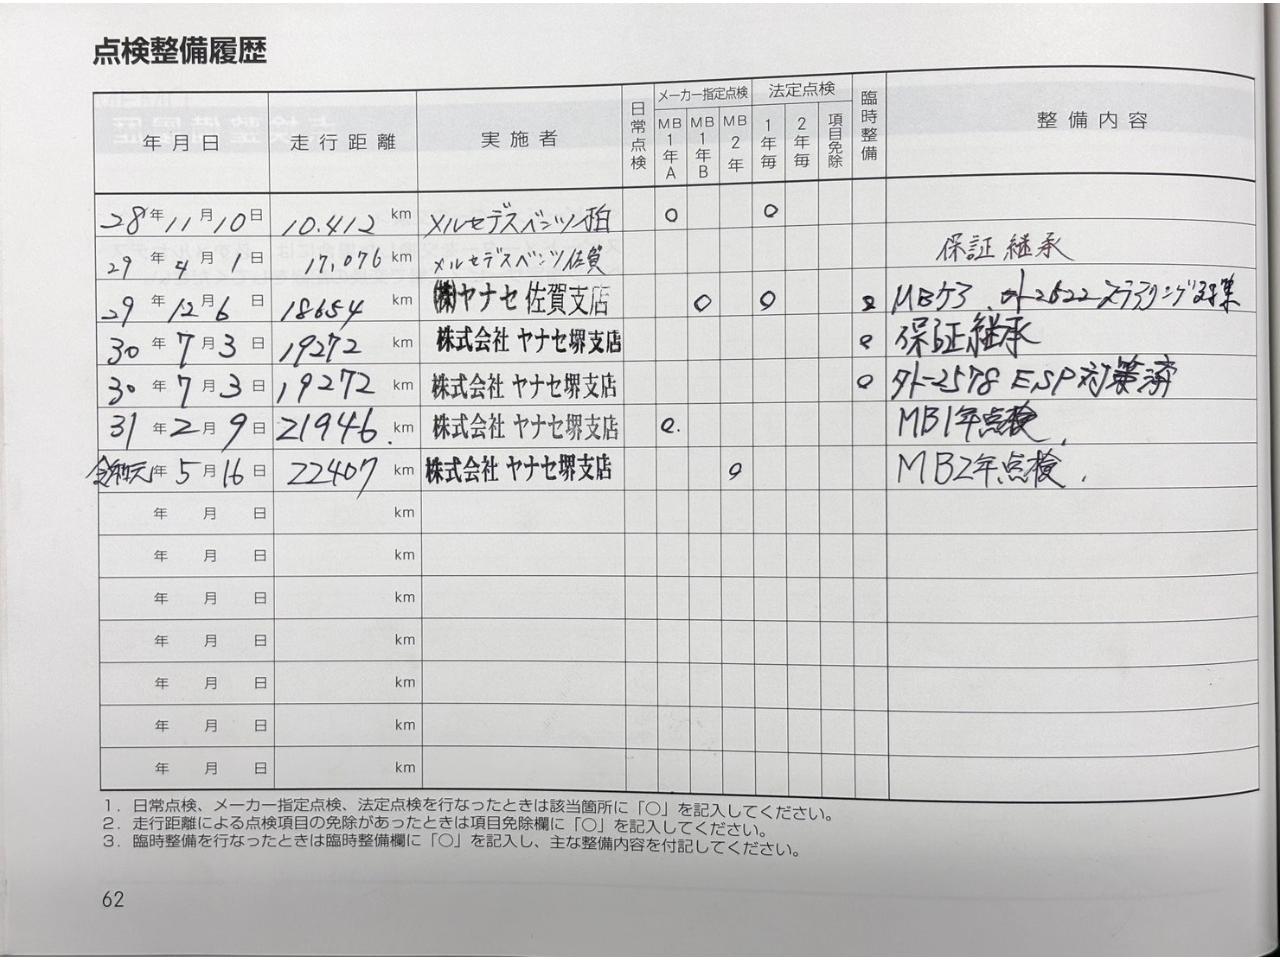 点検整備履歴
年月日 走行距離 実施者 日常点検 メーカー指定点検 MB1年A MB1年B MB2年 法定点検 1年毎 2年毎 項目免除 臨時整備 整備内容
28年11月10日 10.412 km メルセデスベンツ柏 ○ ○
29年4月1日 17,076 km メルセデスベンツ佐賀 保証継承
29年12月6日 18654 km (株)ヤナセ 佐賀支店 ○ ○ ○ MBケア
30年7月3日 19272 km 株式会社 ヤナセ堺支店 ○ 保証継承
30年7月3日 19272 km 株式会社 ヤナセ堺支店 ○ 外-2578 ESP対策済
31年2月9日 21946. km 株式会社 ヤナセ堺支店 ○. MB1年点検.
令和元年5月16日 22407 km 株式会社 ヤナセ堺支店 ○ MB2年点検.
年 月 日 km
年 月 日 km
年 月 日 km
年 月 日 km
年 月 日 km
年 月 日 km
年 月 日 km
1. 日常点検、メーカー指定点検、法定点検を行なったときは該当箇所に「○」を記入してください。
2. 走行距離による点検項目の免除があったときは項目免除欄に「○」を記入してください。
3. 臨時整備を行なったときは臨時整備欄に「○」を記入し、主な整備内容を付記してください。
62